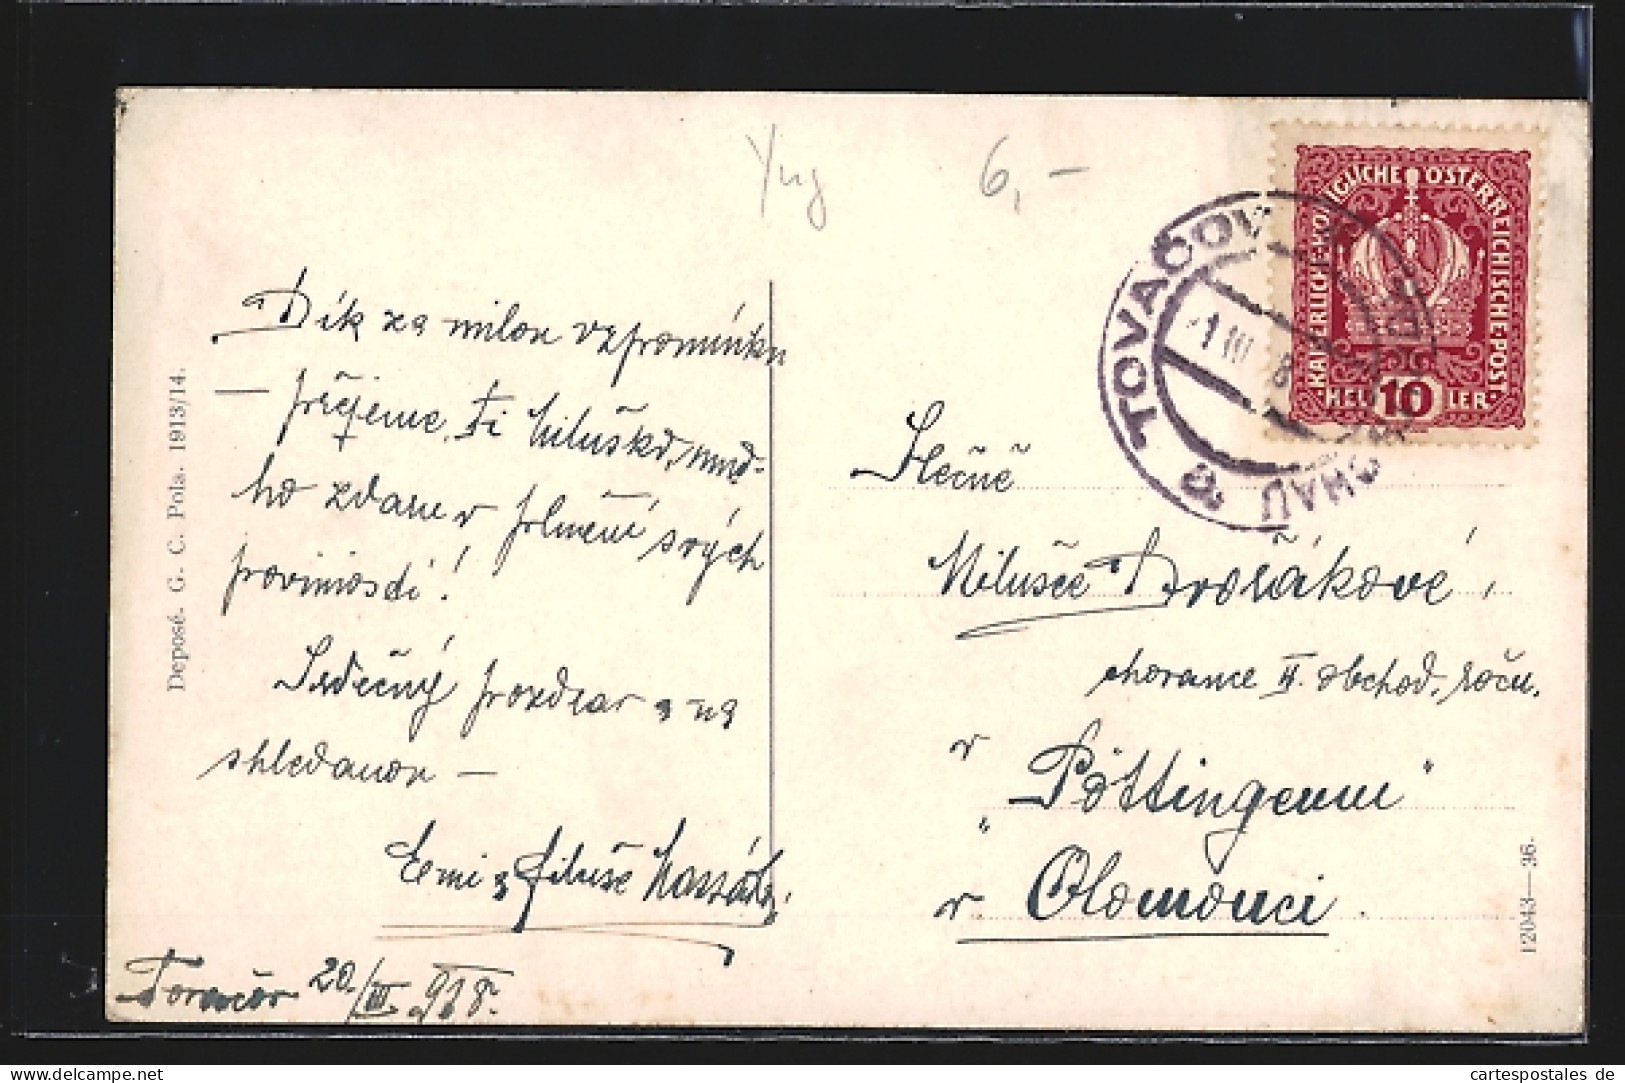 Yug 6,-
KAISERLICHE·KÖNIGLICHE ÖSTERREICHISCHE·POST
HELLER 10
TOVAČOV
1 III 8
Deposé. G. C. Pola. 1913/14.
Dík za milou vzpomínku
— přejeme Ti Miluško, mno-
ho zdaru v plnění svých
povinností!
Srdečný pozdrav a na
shledanou —
Emi a Libuše
Tovačov 20./III. 918.
Slečně
Milušce Dvořákové,
chovance II. obchod. roču.
v
"Pöttingeum"
v Olomouci.
12043—36.
cartespostales de